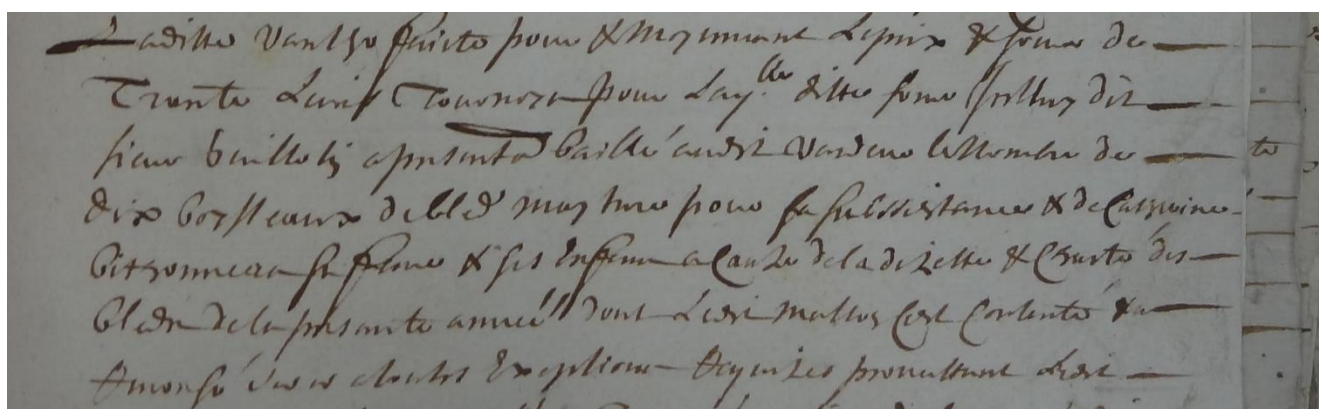 Laditte vanthe faicte pour & moyennant le prix & somme de
Trente Livres Tournois pour laq.lle ditte some Icelluy dit
sieur a presantem baillé audit vandeur le nombre de
dix boysseaux de bled mousture pour sa subssistance & de Catherine
sa femme & ses Enffens a Cauze de la dizette & Cherté des
bleds de la presante année dont Ledit Mathes C'est Contanté & a
Renonsé a toutes Exeptions Requizes promettant Ledit
te